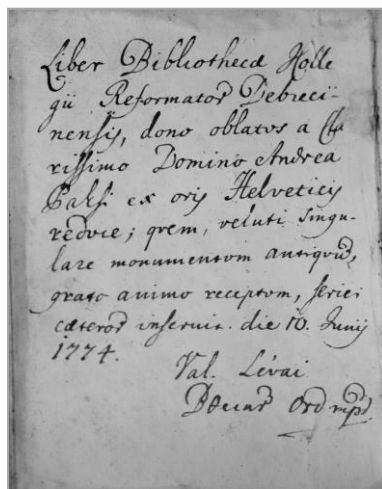 Liber Bibliothecæ Kolle
gii Reformator Debreci-
nensis, dono oblatus a Cla
rissimo Domino Andrea
Paksi ex oris Helveticis
reduce; quem, veluti singu-
lare monumentum
grato animo receptum, seriei
cæteror inseruit. die 10. Junij
1774.
Val. Lévai
Ord mpd.